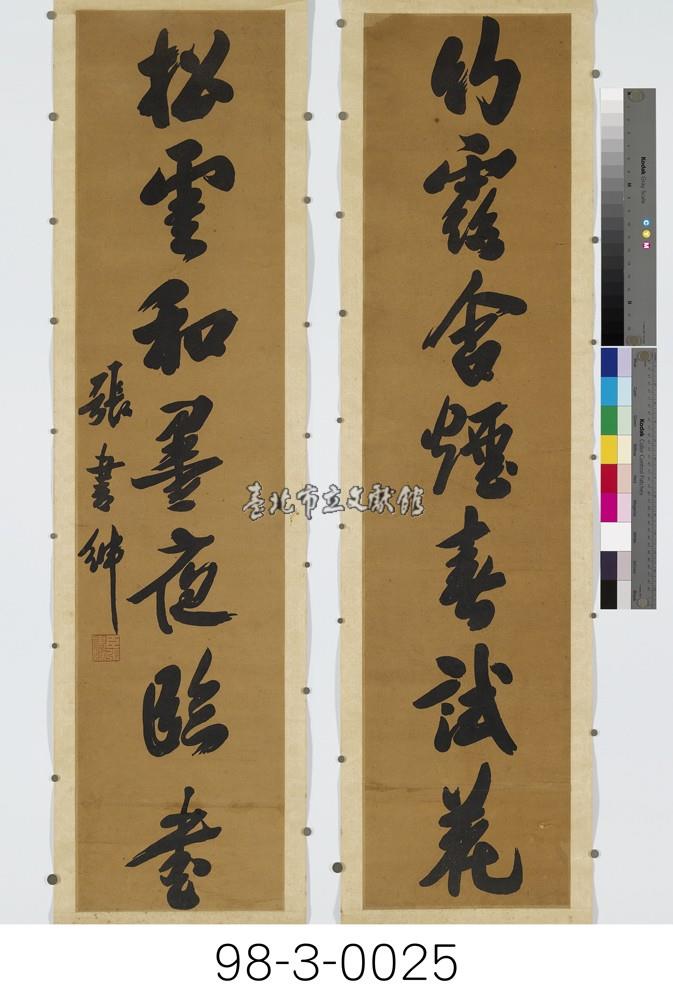 竹露含煙春試花
松雲和墨夜臨書
張書紳
臺北市立文獻館
Kodak Gray Scale
C Y M
Kodak Color Control Patches
98-3-0025